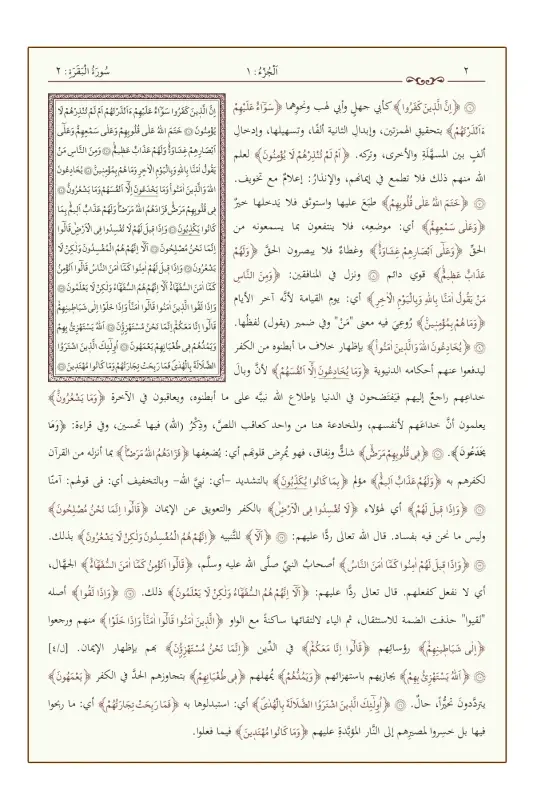 ٢
اَلْجُزْءُ: ١
سُورَةُ الْبَقَرَةِ: ٢
۞ ﴿إِنَّ الَّذِينَ كَفَرُوا﴾ كأبي جهلٍ وأبي لهب ونحوهما ﴿سَوَآءٌ عَلَيْهِمْ
ءَاَنْذَرْتَهُمْ﴾ بتحقيق الهمزتين، وإبدالِ الثانية ألفًا، وتسهيلها، وإدخالِ
ألفٍ بين المسهَّلَةِ والأخرى، وتركه. ﴿اَمْ لَمْ تُنْذِرْهُمْ لَا يُؤْمِنُونَ﴾ لعلم
الله منهم ذلك فلا تطمع في إيمانهم، والإنذارُ: إعلامٌ مع تخويف.
۞ ﴿خَتَمَ اللهُ عَلٰى قُلُوبِهِمْ﴾ طبَعَ عليها واستوثق فلا يَدخلها خيرٌ
﴿وَعَلٰى سَمْعِهِمْ﴾ أي: موضعِه، فلا ينتفعون بما يسمعونه من
الحقِّ ﴿وَعَلٰٓى اَبْصَارِهِمْ غِشَاوَةٌ﴾ وغطاءٌ فلا يبصرون الحقَّ ﴿وَلَهُمْ
عَذَابٌ عَظِيمٌ﴾ قوي دائم ۞ ونزل في المنافقين: ﴿وَمِنَ النَّاسِ
مَنْ يَقُولُ اٰمَنَّا بِاللهِ وَبِالْيَوْمِ الْاٰخِرِ﴾ أي: يوم القيامة لأنَّه آخر الأيام
﴿وَمَا هُمْ بِمُؤْمِنِينَ﴾ رُوعِيَ فيه معنى "مَنْ" وفي ضمير (يقول) لفظُها.
۞ ﴿يُخَادِعُونَ اللهَ وَالَّذِينَ اٰمَنُوا﴾ بإظهار خلاف ما أبطنوه من الكفر
ليدفعوا عنهم أحكامه الدنيوية ﴿وَمَا يُخَادِعُونَ اِلَّٓا اَنْفُسَهُمْ﴾ لأنَّ وبالَ
خداعِهم راجعٌ إليهم فيَفتضحون في الدنيا بإطلاع الله نبيَّه على ما أبطنوه، ويعاقبون في الآخرة ﴿وَمَا يَشْعُرُونَ﴾
يعلمون أنَّ خداعَهم لأنفسهم، والمخادعة هنا من واحد كعاقب اللصَّ، وذِكْرُ (الله) فيها تحسين، وفي قراءة: ﴿وَمَا
يَخْدَعُونَ﴾. ۞ ﴿فِي قُلُوبِهِمْ مَرَضٌ﴾ شكٌّ ونفاق، فهو يُمرِض قلوبَهم أي: يُضعِفها ﴿فَزَادَهُمُ اللهُ مَرَضًا﴾ بما أنزله من القرآن
لكفرهم به ﴿وَلَهُمْ عَذَابٌ اَلِيمٌ﴾ مؤلم ﴿بِمَا كَانُوا يُكَذِّبُونَ﴾ بالتشديد -أي: نبيَّ الله- وبالتخفيف أي: في قولهم: آمنَّا
۞ ﴿وَاِذَا قِيلَ لَهُمْ﴾ أي لهؤلاء ﴿لَا تُفْسِدُوا فِي الْاَرْضِ﴾ بالكفر والتعويق عن الإيمان ﴿قَالُٓوا اِنَّمَا نَحْنُ مُصْلِحُونَ﴾
وليس ما نحن فيه بفساد. قال الله تعالى ردًّا عليهم: ۞ ﴿اَلَٓا﴾ للتَّنبيه ﴿اِنَّهُمْ هُمُ الْمُفْسِدُونَ وَلٰكِنْ لَا يَشْعُرُونَ﴾ بذلك.
۞ ﴿وَاِذَا قِيلَ لَهُمْ اٰمِنُوا كَمَٓا اٰمَنَ النَّاسُ﴾ أصحابُ النبيِّ صلَّى الله عليه وسلَّم، ﴿قَالُٓوا اَنُؤْمِنُ كَمَٓا اٰمَنَ السُّفَهَٓاءُ﴾ الجهَّال،
أي لا نفعل كفعلهم. قال تعالى ردًّا عليهم: ﴿اَلَٓا اِنَّهُمْ هُمُ السُّفَهَٓاءُ وَلٰكِنْ لَا يَعْلَمُونَ﴾ ذلك. ۞ ﴿وَاِذَا لَقُوا﴾ أصله
"لَقِيوا" حذفت الضمة للاستثقال، ثم الياء لالتقائها ساكنةً مع الواو ﴿الَّذِينَ اٰمَنُوا قَالُٓوا اٰمَنَّا وَاِذَا خَلَوْا﴾ منهم ورجعوا
﴿اِلٰى شَيَاطِينِهِمْ﴾ رؤسائِهم ﴿قَالُٓوا اِنَّا مَعَكُمْ﴾ في الدِّين ﴿اِنَّمَا نَحْنُ مُسْتَهْزِؤُنَ﴾ بهم بإظهار الإيمان. [ل/٤]
۞ ﴿اَللهُ يَسْتَهْزِئُ بِهِمْ﴾ يجازيهم باستهزائهم ﴿وَيَمُدُّهُمْ﴾ يُمهلهم ﴿فِي طُغْيَانِهِمْ﴾ بتجاوزهم الحدَّ في الكفر ﴿يَعْمَهُونَ﴾
يتردَّدونَ تحيُّرًا، حالٌ. ۞ ﴿اُولٰٓئِكَ الَّذِينَ اشْتَرَوُا الضَّلَالَةَ بِالْهُدٰى﴾ أي: استبدلوها به ﴿فَمَا رَبِحَتْ تِجَارَتُهُمْ﴾ أي: ما ربحوا
فيها بل خسِروا لمصيرهم إلى النَّار المؤبَّدةِ عليهم ﴿وَمَا كَانُوا مُهْتَدِينَ﴾ فيما فعلوا.
اِنَّ الَّذِينَ كَفَرُوا سَوَٓاءٌ عَلَيْهِمْ ءَاَنْذَرْتَهُمْ اَمْ لَمْ تُنْذِرْهُمْ لَا
يُؤْمِنُونَ ۞ خَتَمَ اللهُ عَلٰى قُلُوبِهِمْ وَعَلٰى سَمْعِهِمْ وَعَلٰٓى
اَبْصَارِهِمْ غِشَاوَةٌ وَلَهُمْ عَذَابٌ عَظِيمٌ ۞ وَمِنَ النَّاسِ مَنْ
يَقُولُ اٰمَنَّا بِاللهِ وَبِالْيَوْمِ الْاٰخِرِ وَمَا هُمْ بِمُؤْمِنِينَ ۞ يُخَادِعُونَ
اللهَ وَالَّذِينَ اٰمَنُوا وَمَا يَخْدَعُونَ اِلَّٓا اَنْفُسَهُمْ وَمَا يَشْعُرُونَ ۞
فِي قُلُوبِهِمْ مَرَضٌ فَزَادَهُمُ اللهُ مَرَضًا وَلَهُمْ عَذَابٌ اَلِيمٌ بِمَا
كَانُوا يَكْذِبُونَ ۞ وَاِذَا قِيلَ لَهُمْ لَا تُفْسِدُوا فِي الْاَرْضِ قَالُٓوا
اِنَّمَا نَحْنُ مُصْلِحُونَ ۞ اَلَٓا اِنَّهُمْ هُمُ الْمُفْسِدُونَ وَلٰكِنْ لَا
يَشْعُرُونَ ۞ وَاِذَا قِيلَ لَهُمْ اٰمِنُوا كَمَٓا اٰمَنَ النَّاسُ قَالُٓوا اَنُؤْمِنُ
كَمَٓا اٰمَنَ السُّفَهَٓاءُ اَلَٓا اِنَّهُمْ هُمُ السُّفَهَٓاءُ وَلٰكِنْ لَا يَعْلَمُونَ ۞
وَاِذَا لَقُوا الَّذِينَ اٰمَنُوا قَالُٓوا اٰمَنَّا وَاِذَا خَلَوْا اِلٰى شَيَاطِينِهِمْ
قَالُٓوا اِنَّا مَعَكُمْ اِنَّمَا نَحْنُ مُسْتَهْزِؤُنَ ۞ اَللهُ يَسْتَهْزِئُ بِهِمْ
وَيَمُدُّهُمْ فِي طُغْيَانِهِمْ يَعْمَهُونَ ۞ اُولٰٓئِكَ الَّذِينَ اشْتَرَوُا
الضَّلَالَةَ بِالْهُدٰى فَمَا رَبِحَتْ تِجَارَتُهُمْ وَمَا كَانُوا مُهْتَدِينَ ۞